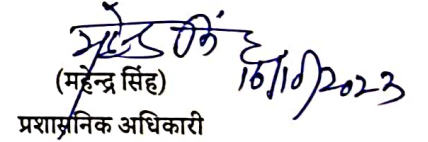 महेन्द्र सिंह
16/10/2023
(महेन्द्र सिंह)
प्रशासनिक अधिकारी